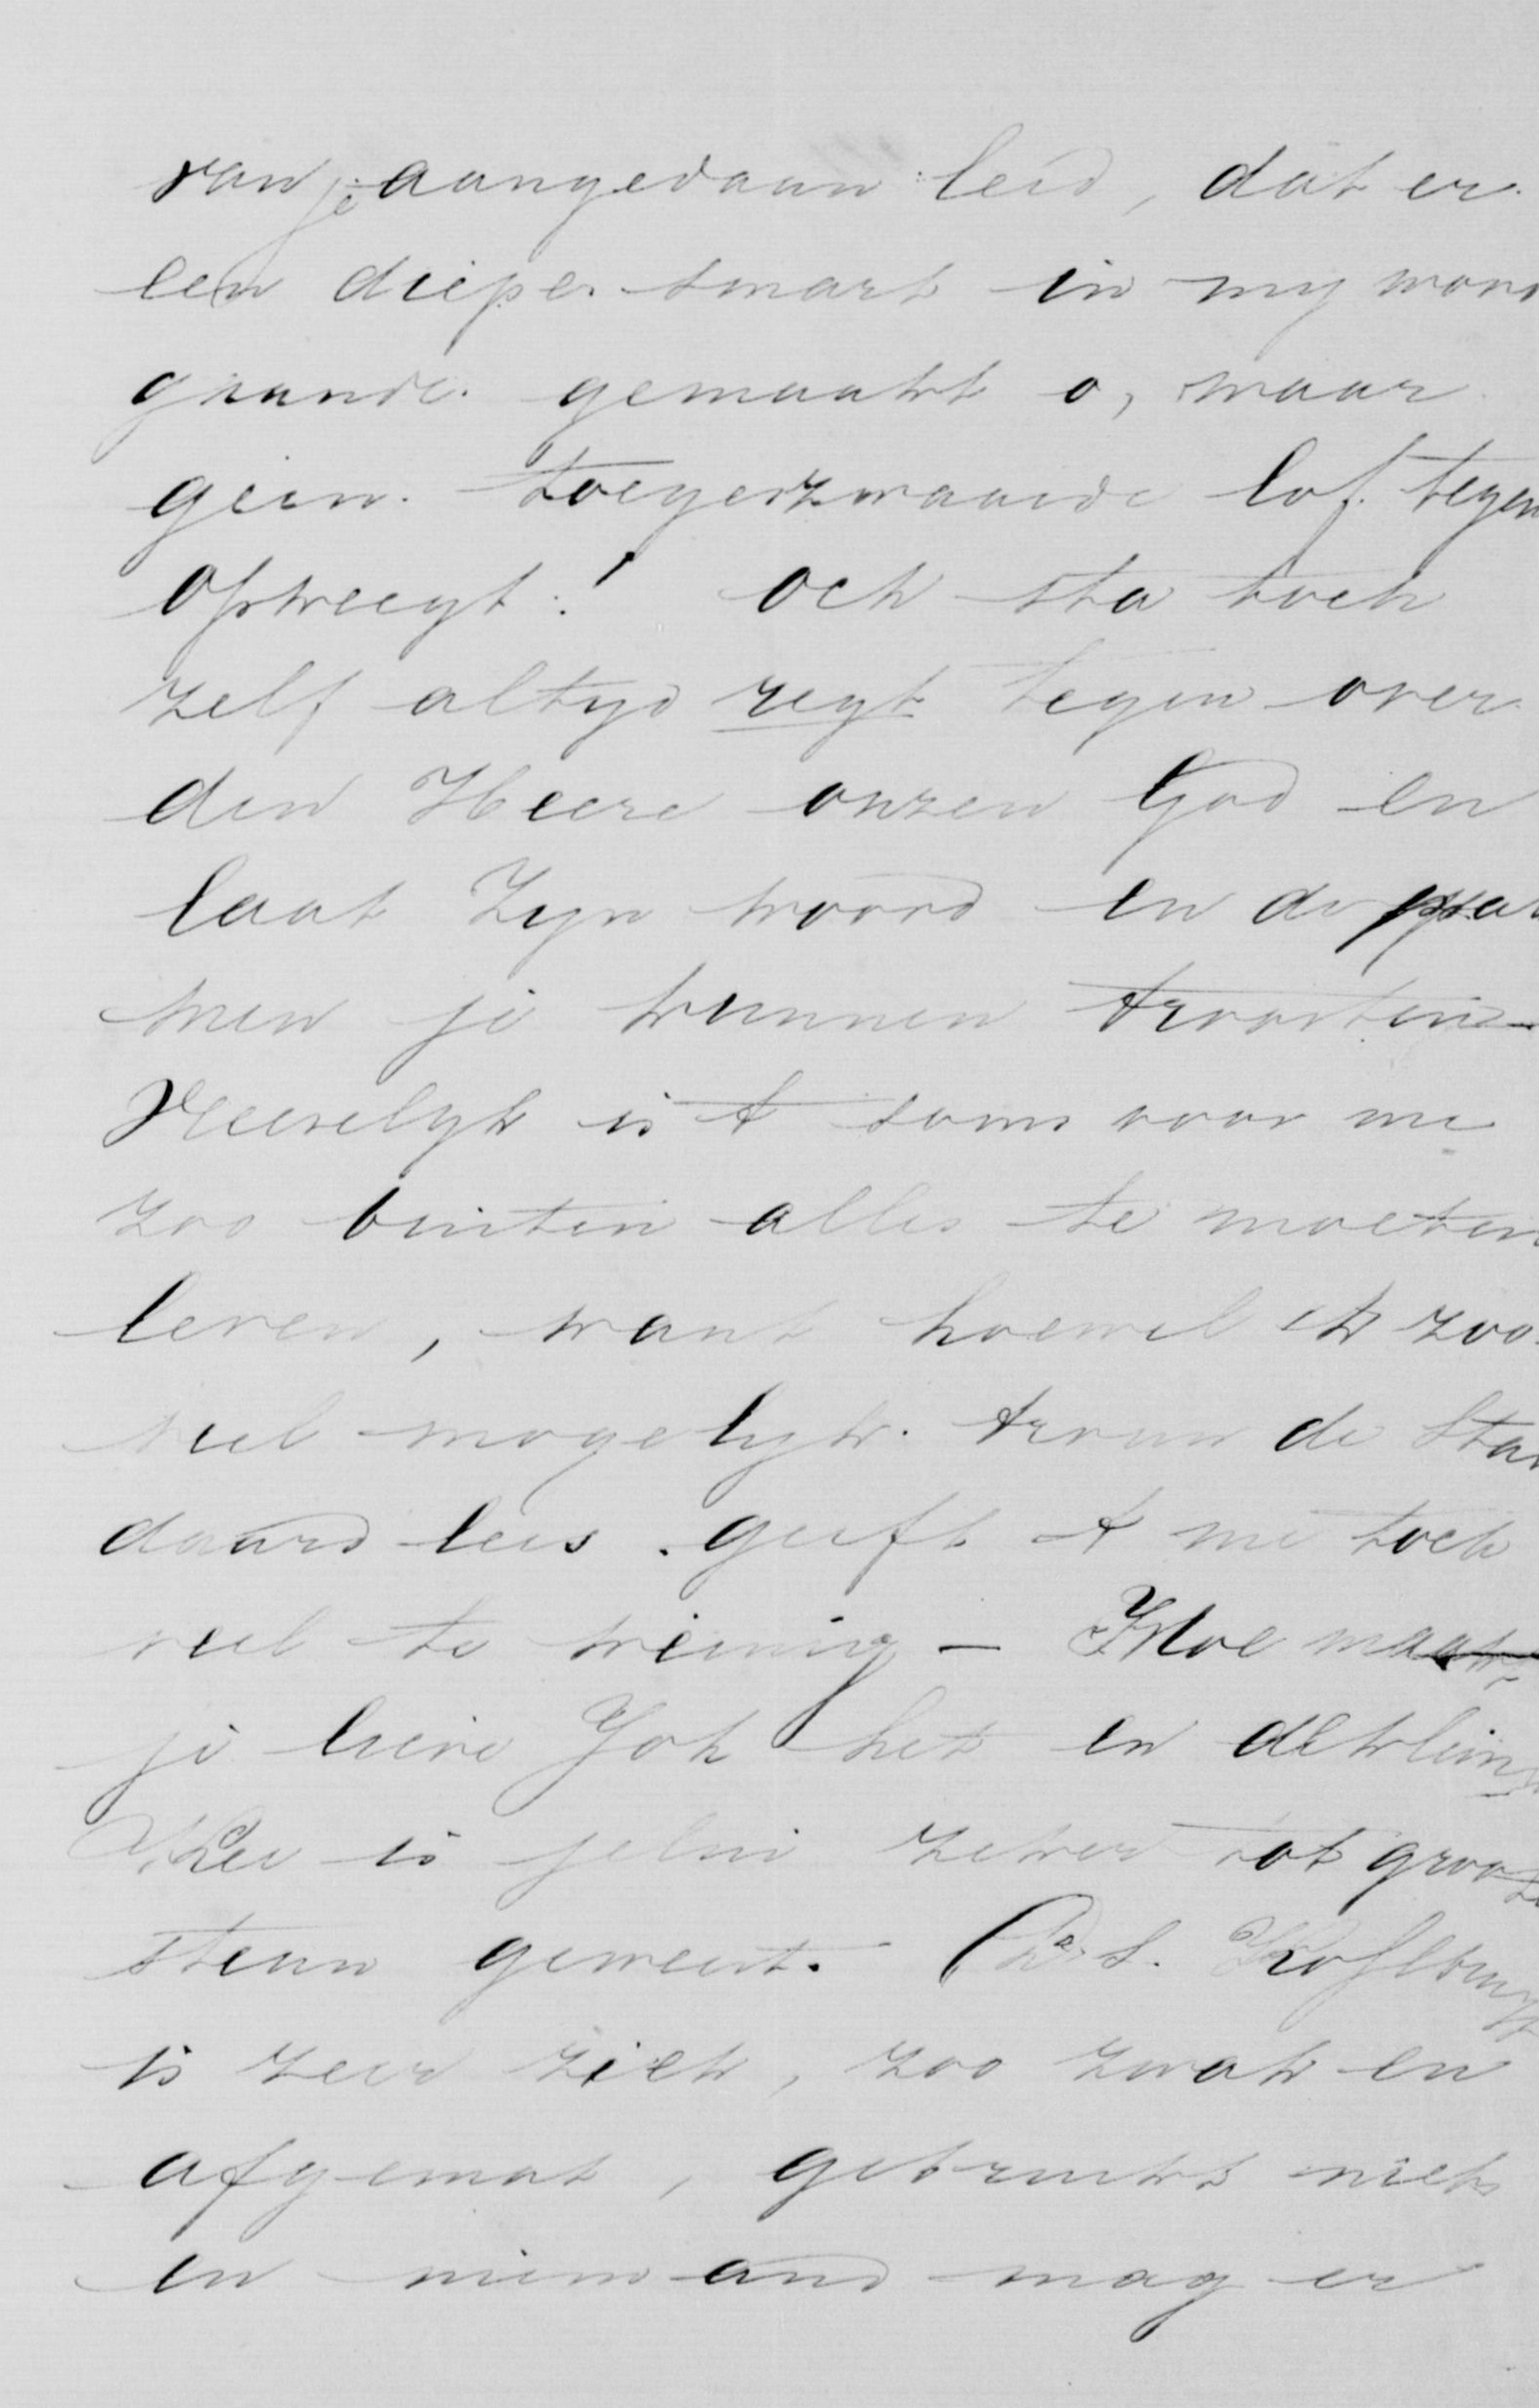 van je aangedaan leed, dat er
een diepe smart in my word
gaande gemaakt o, waar
geen toegezwaaide lof tegen
opweegt! och sta toch
zelf altyd regt tegen over
den Heere onzen God en
laat Zyn woord en de psal
men je kunnen troosten –
Heerelyk is 't soms voor me
zoo buiten alles te moeten
leven, want hoewel ik zoo
veel mogelyk trouw de Stan
daard lees geeft 't me toch
veel te weinig – Hoe maak
je lieve Joh het en de kleine
Kee is jelui zeker tot groote
steun geweest. Ds. Kohlbrugge
is zeer ziek, zoo zwak en
afgemat, gebruikt niets
en niemand mag er